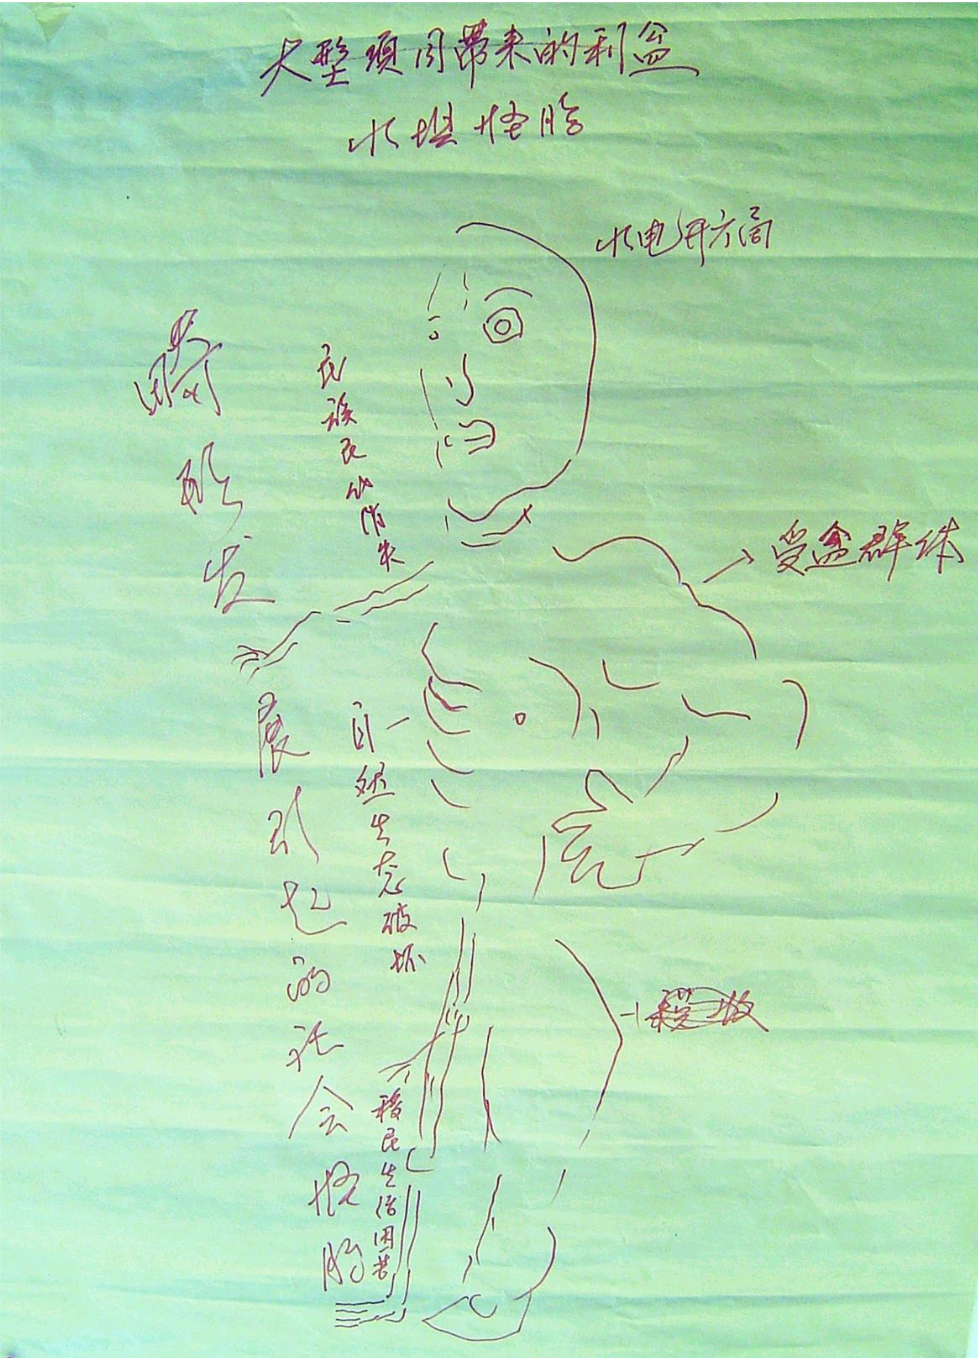 大型项目带来的利益
水坝怪胎
水电开发商
畸形发展引起的社会怪胎
民族民俗消失
受益群体
自然生态破坏
移民生活困苦